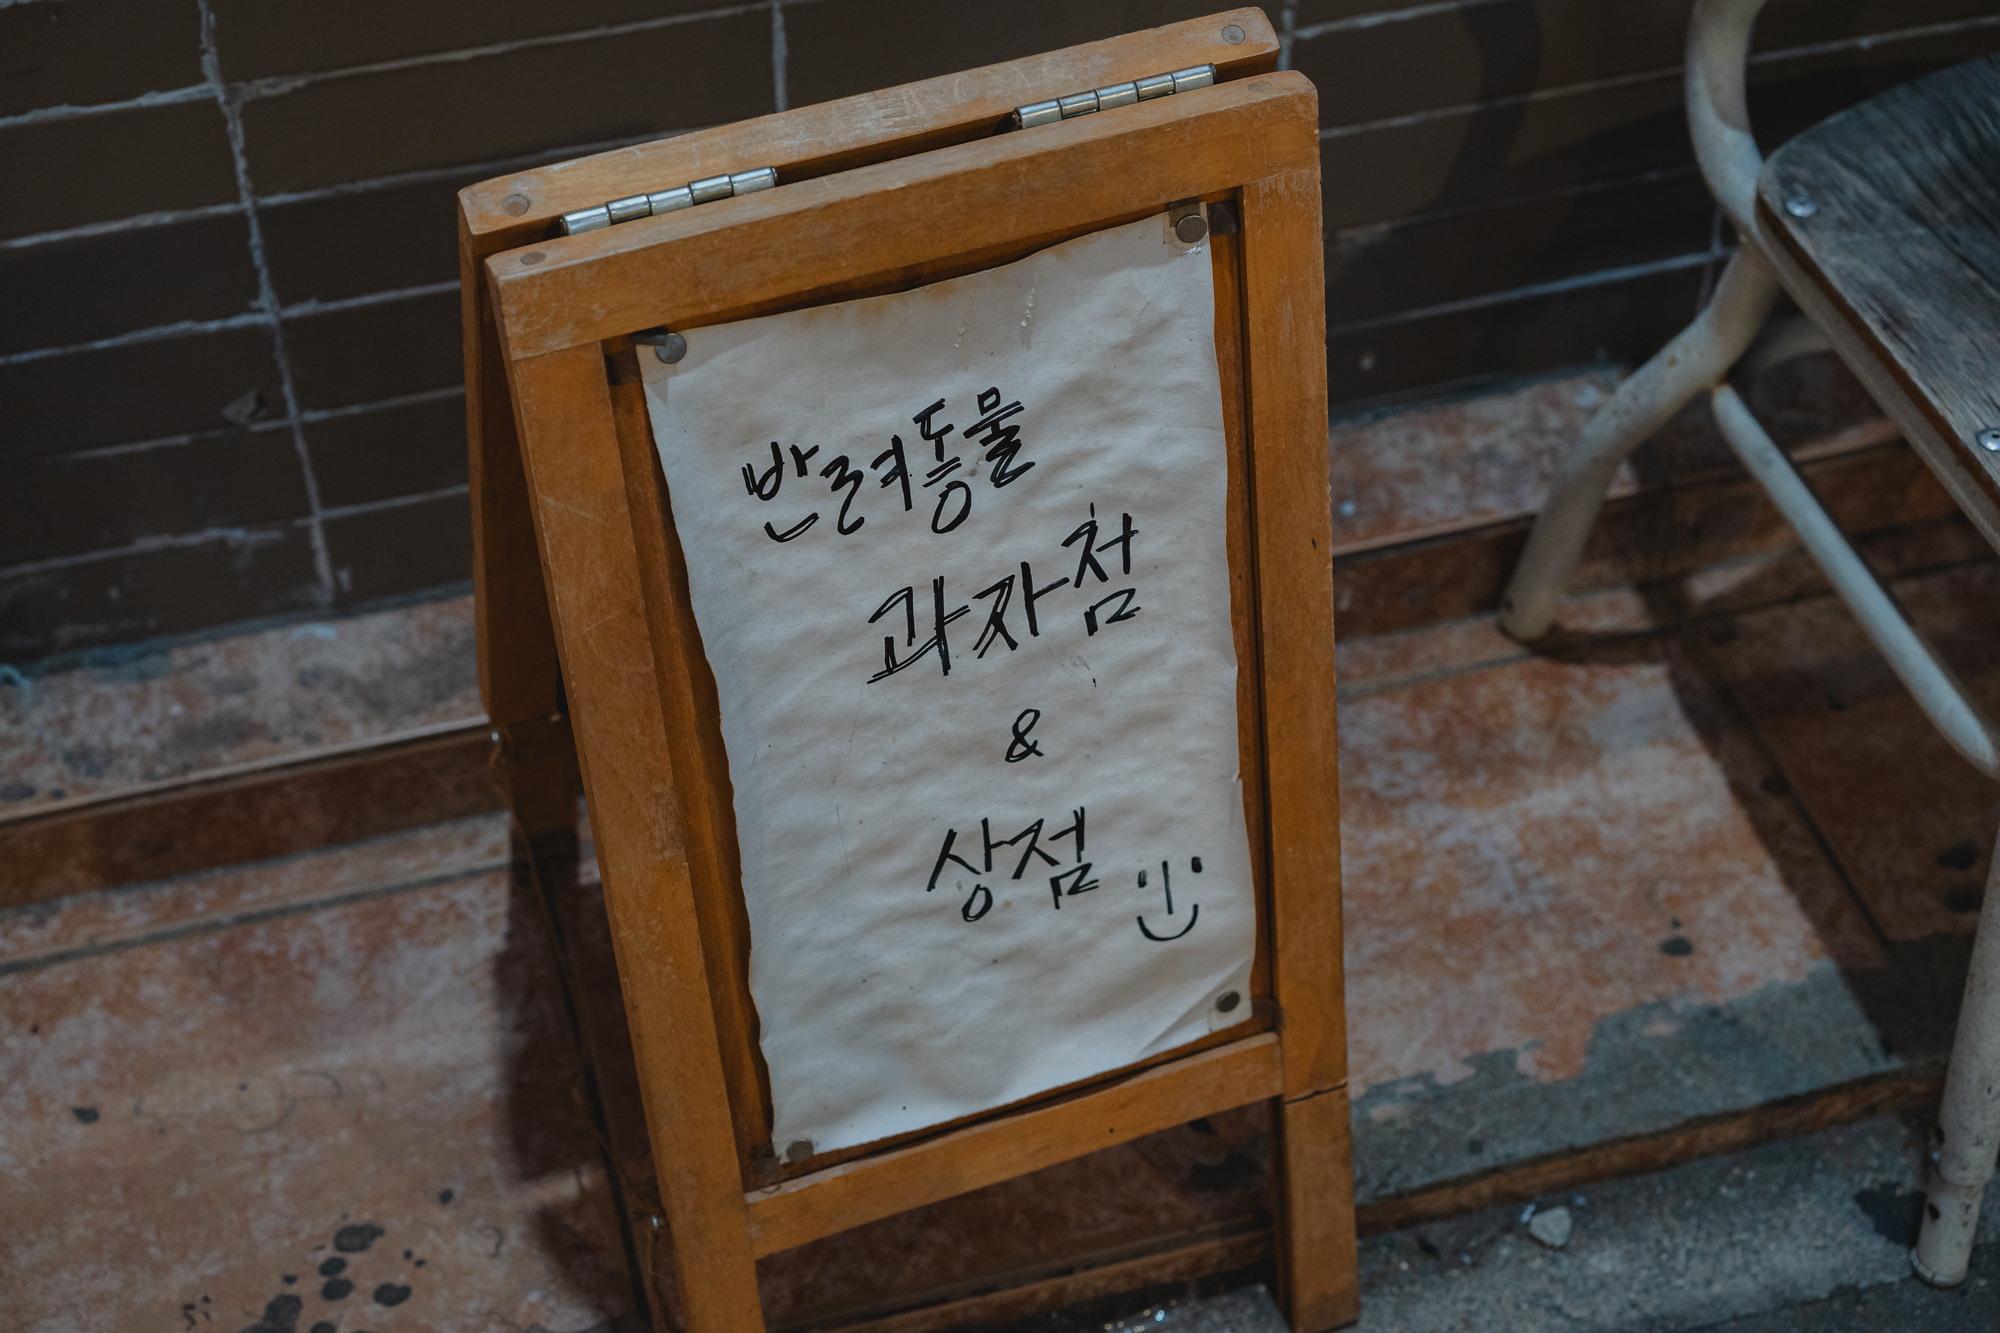 반려동물
과자점
&
상점